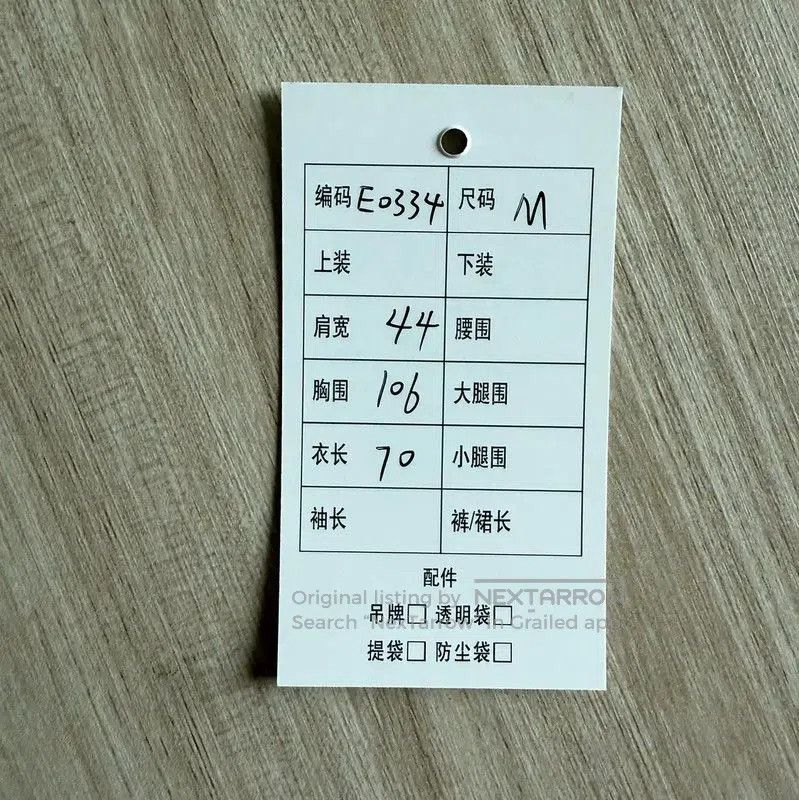 编码 E0334 尺码 M
上装 下装
肩宽 44 腰围
胸围 106 大腿围
衣长 70 小腿围
袖长 裤/裙长
配件
Original listing by NEXTARRO
吊牌□ 透明袋□
Search "NexTarrow" in Grailed ap
提袋□ 防尘袋□